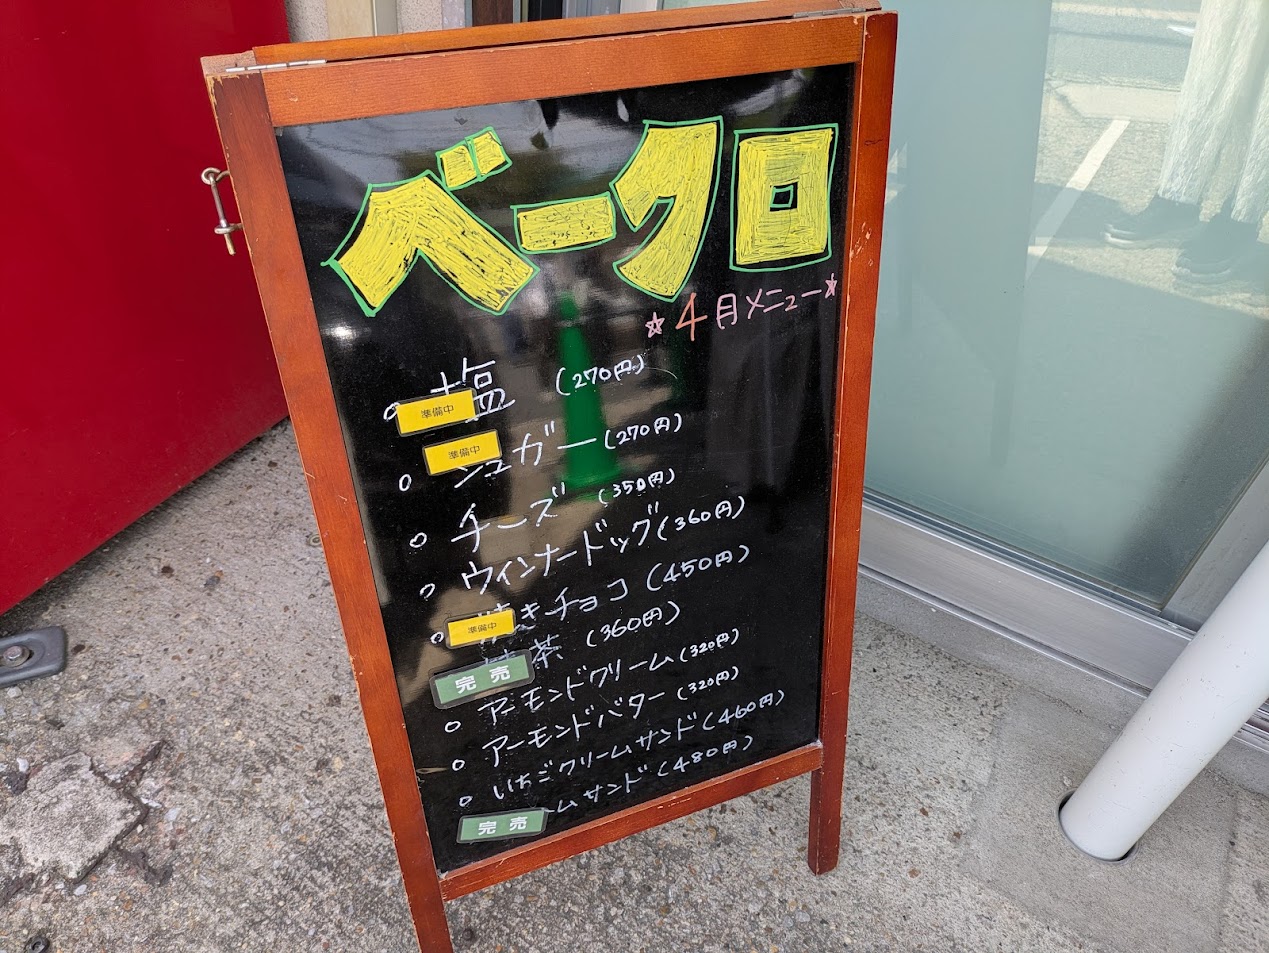 ベーグロ
☆4月メニュー☆
塩 (270円)
準備中
シュガー (270円)
準備中
チーズ (350円)
ウィンナードッグ (360円)
焼きチョコ (450円)
準備中
茶 (360円)
完売
アーモンドクリーム (320円)
アーモンドバター (320円)
いちごクリームサンド (460円)
ームサンド (480円)
完売